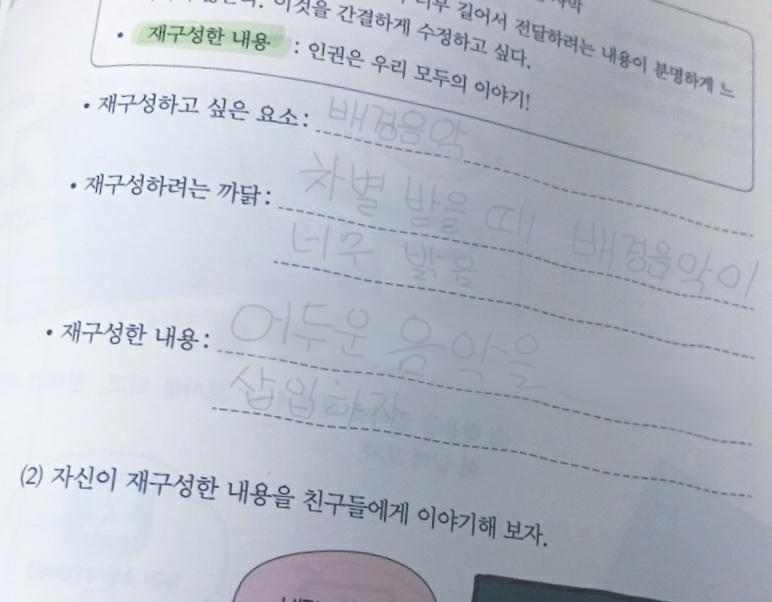 이것을 간결하게 수정하고 싶다.
길어서 전달하려는 내용이 분명하게 느
• 재구성한 내용 : 인권은 우리 모두의 이야기!
• 재구성하고 싶은 요소: 배경음악
• 재구성하려는 까닭: 차별 받을 때 배경음악이
너무 밝음
• 재구성한 내용: 어두운 음악을
삽입하자
(2) 자신이 재구성한 내용을 친구들에게 이야기해 보자.